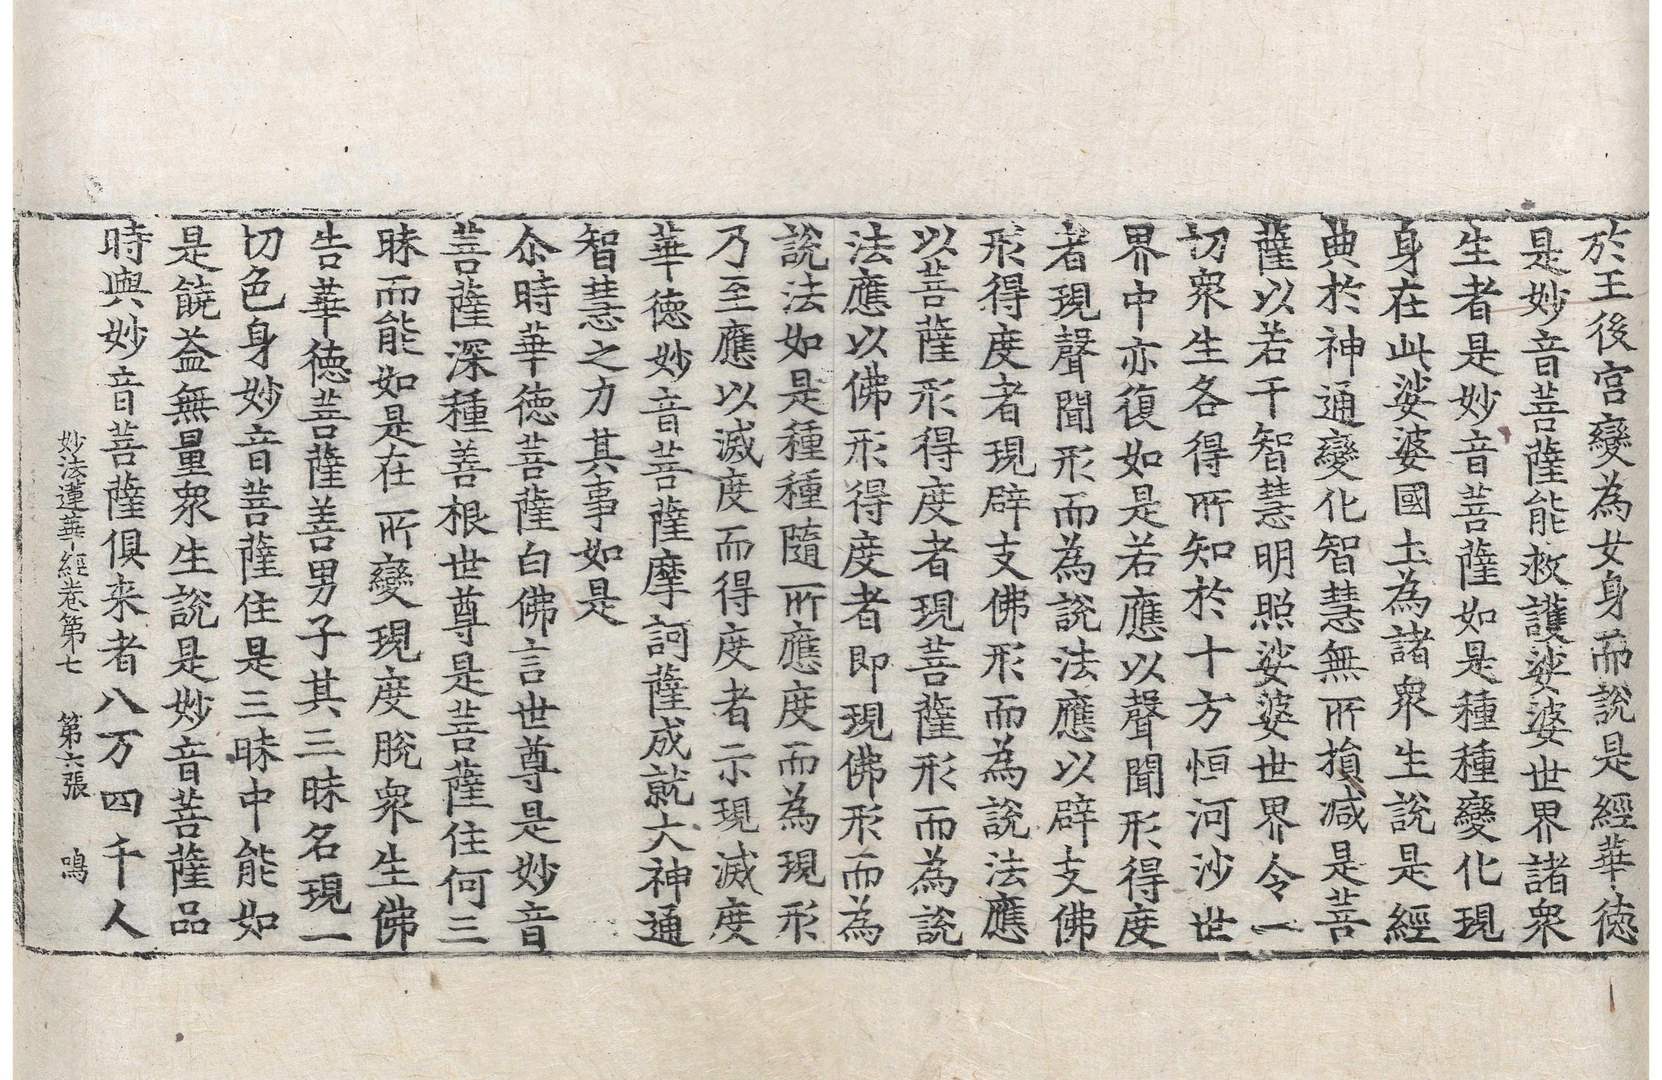 於王後宮變為女身而說是經華德
是妙音菩薩能救護娑婆世界諸衆
生者是妙音菩薩如是種種變化現
身在此娑婆國土為諸衆生說是經
典於神通變化智慧無所損减是菩
薩以若干智慧明照娑婆世界令一
切衆生各得所知於十方恒河沙世
界中亦復如是若應以聲聞形得度
者現聲聞形而為說法應以辟支佛
形得度者現辟支佛形而為說法應
以菩薩形得度者現菩薩形而為說
法應以佛形得度者即現佛形而為
說法如是種種隨所應度而為現形
乃至應以滅度而得度者示現滅度
華德妙音菩薩摩訶薩成就大神通
智慧之力其事如是
尒時華德菩薩白佛言世尊是妙音
菩薩深種善根世尊是菩薩住何三
昧而能如是在所變現度脫衆生佛
告華德菩薩善男子其三昧名現一
切色身妙音菩薩住是三昧中能如
是饒益無量衆生說是妙音菩薩品
時與妙音菩薩俱来者八万四千人
妙法蓮華經卷第七 第六張 鳴